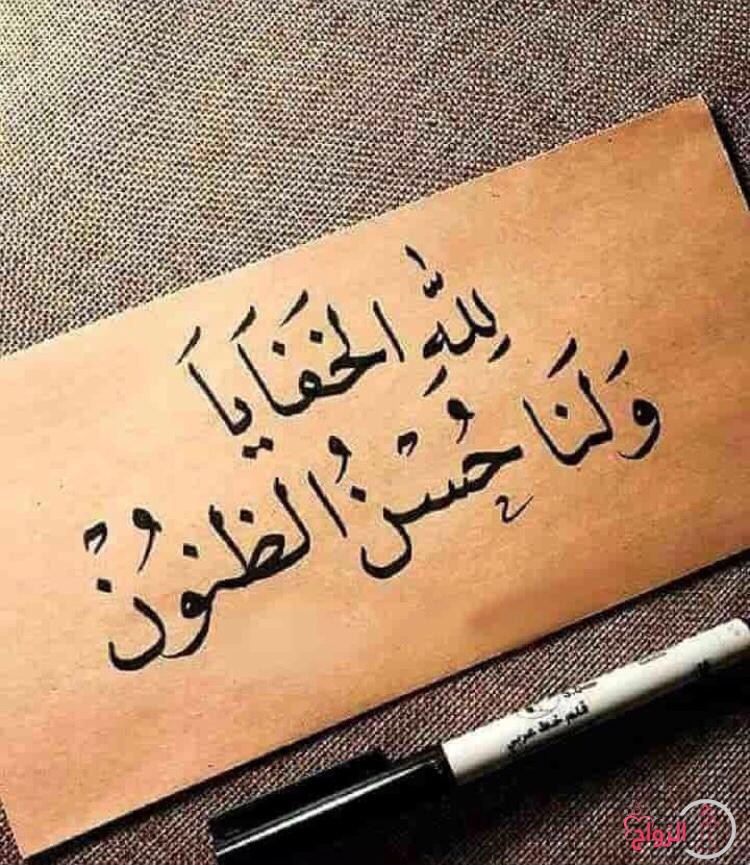 لِلّٰهِ الخَفَايَا
وَلَنَا حُسْنُ الظنُونْ
قلم خط عربي
الزواج